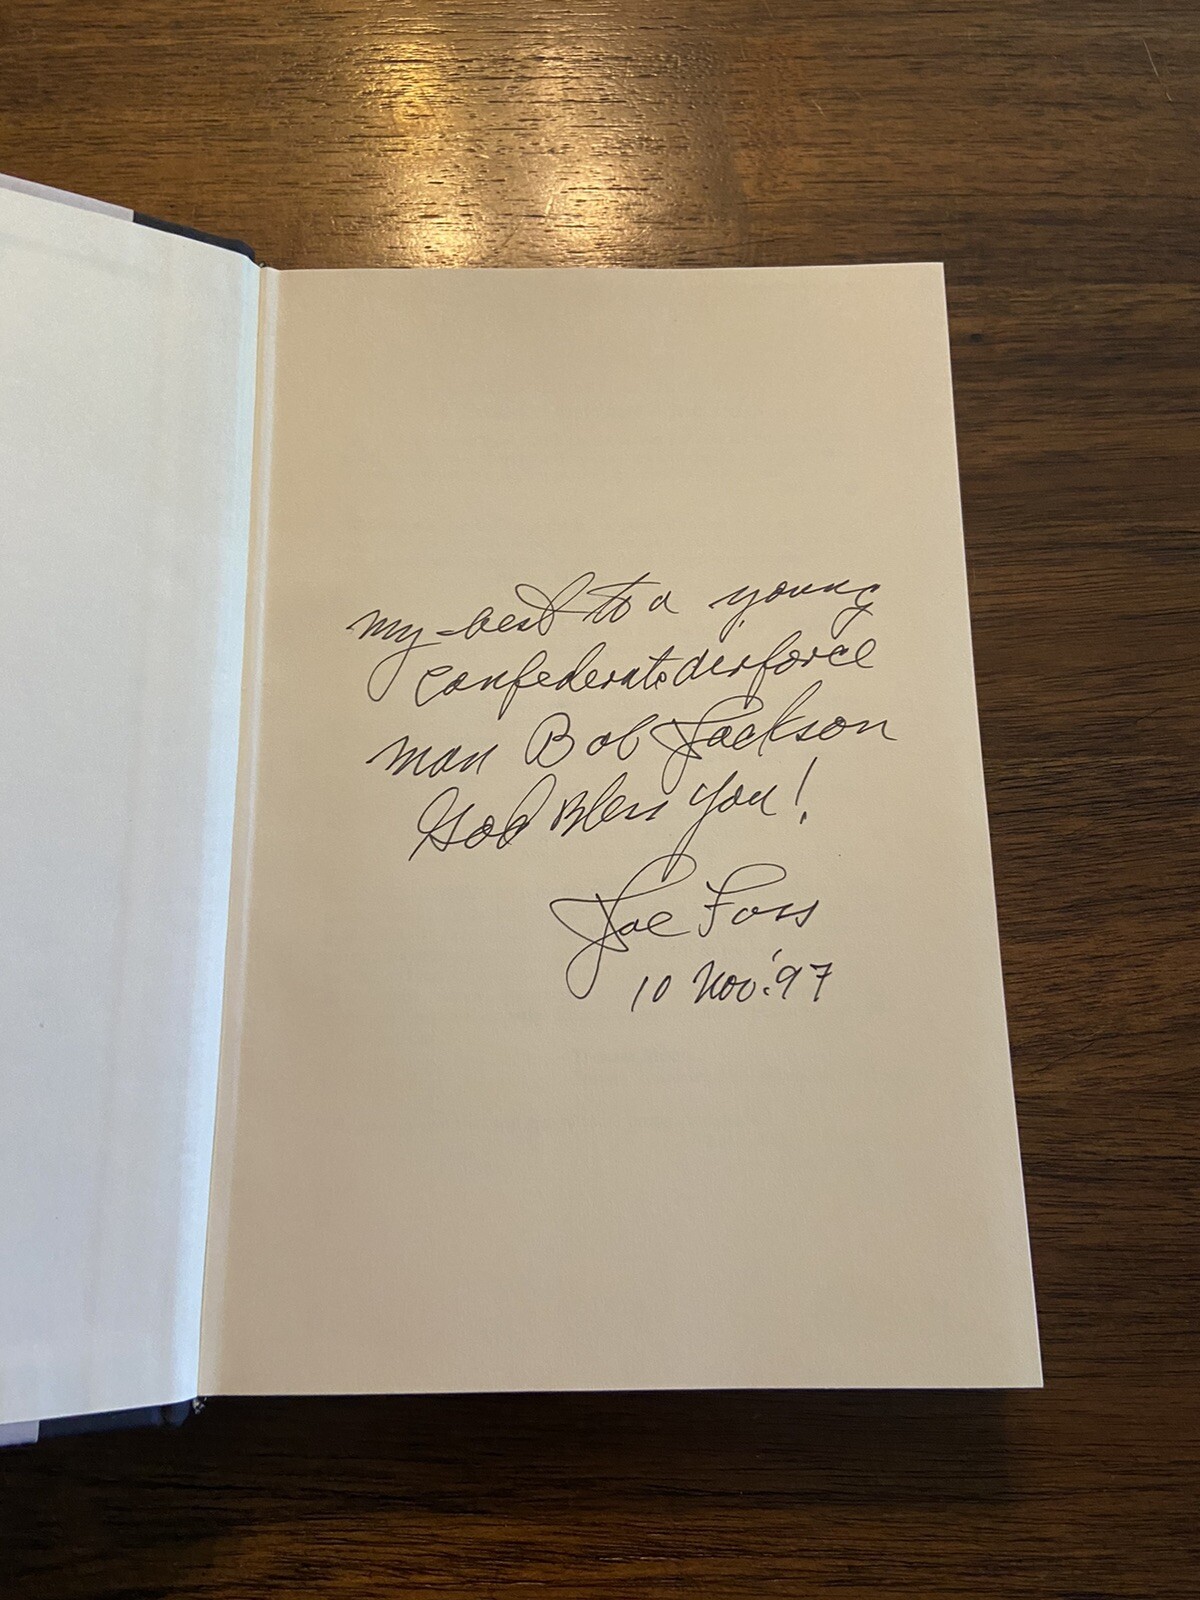 my best to a young
confederate airforce
man Bob Jackson
God Bless You!
Joe Foss
10 Nov. '97